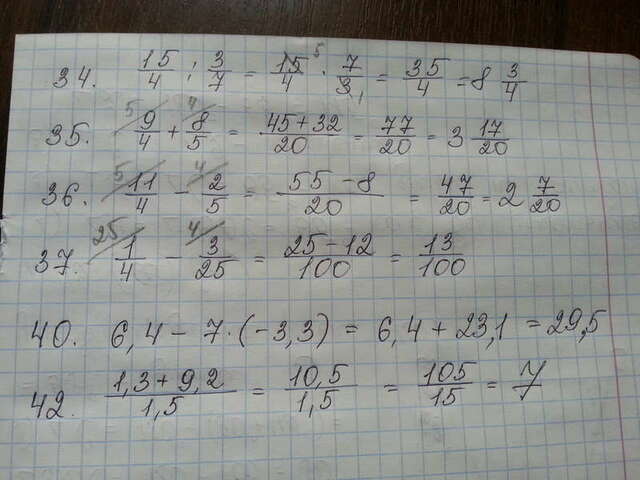 34. 15/4 : 3/7 = 15⁵/4 · 7/3₁ = 35/4 = 8 3/4
35. ⁵⁄9/4 + ⁴⁄8/5 = 45+32/20 = 77/20 = 3 17/20
36. ⁵⁄11/4 − ⁴⁄2/5 = 55−8/20 = 47/20 = 2 7/20
37. ²⁵⁄1/4 − ⁴⁄3/25 = 25−12/100 = 13/100
40. 6,4 − 7·(−3,3) = 6,4 + 23,1 = 29,5
42. 1,3+9,2/1,5 = 10,5/1,5 = 105/15 = 7